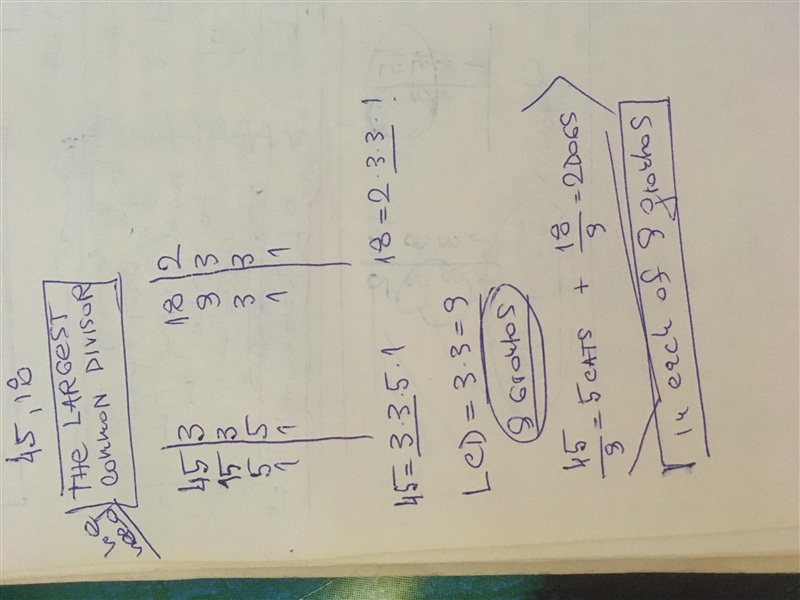 45, 18
THE LARGEST
COMMON DIVISOR
45 | 3
15 | 3
5 | 5
1 | 1
18 | 2
9 | 3
3 | 3
1 | 1
45 = 3.3.5.1
18 = 2.3.3.1.
LCD = 3.3 = 9
45/9 = 5 CATS + 18/9 = 2 DOGS
in each of 9